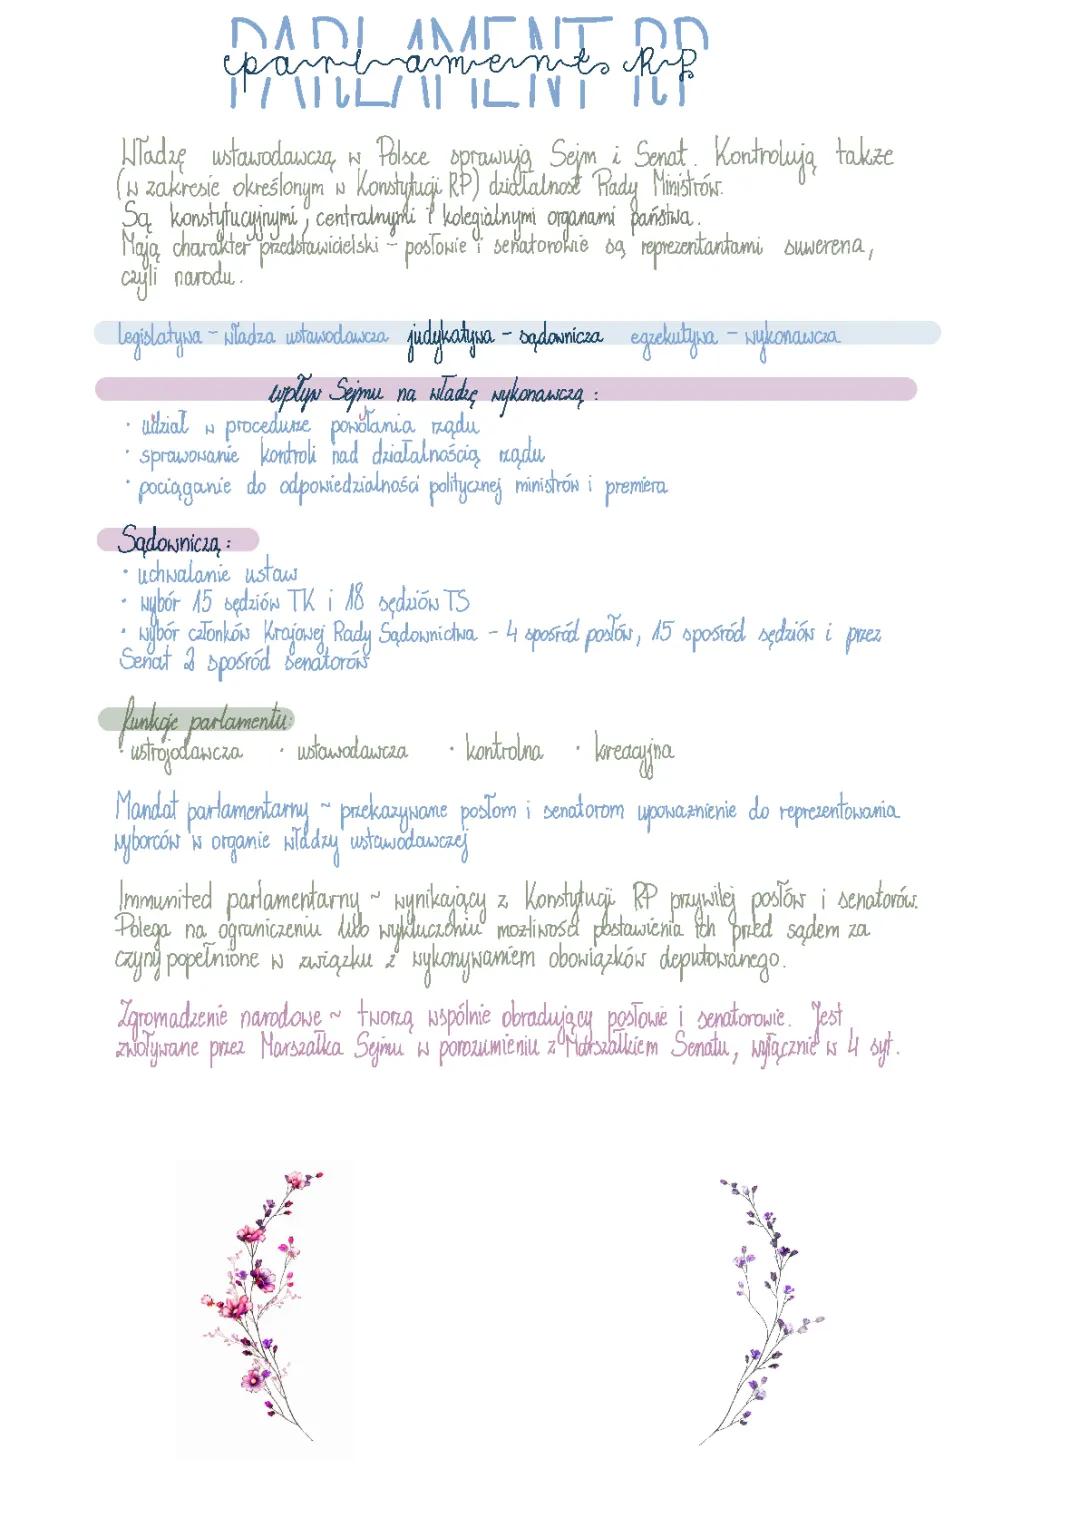 PARLAMENT RP
parlament RP
Władzę ustawodawczą w Polsce sprawują Sejm i Senat. Kontrolują także
(w zakresie określonym w Konstytucji RP) działalność Rady Ministrów.
Są konstytucyjnymi, centralnymi i kolegialnymi organami państwa.
Mają charakter przedstawicielski - posłowie i senatorowie są reprezentantami suwerena,
czyli narodu.
legislatywa - władza ustawodawcza judykatywa - sądownicza egzekutywa - wykonawcza
wpływ Sejmu na władzę wykonawczą:
• udział w procedurze powołania rządu
• sprawowanie kontroli nad działalnością rządu
• pociąganie do odpowiedzialności politycznej ministrów i premiera
Sądowniczą:
• uchwalanie ustaw
• wybór 15 sędziów TK i 18 sędziów TS
• wybór członków Krajowej Rady Sądownictwa - 4 spośród posłów, 15 spośród sędziów i przez
Senat 2 spośród senatorów
funkcje parlamentu:
• ustrojodawcza • ustawodawcza • kontrolna • kreacyjna
Mandat parlamentarny ~ przekazywane posłom i senatorom upoważnienie do reprezentowania
wyborców w organie władzy ustawodawczej
Immunited parlamentarny ~ wynikający z Konstytucji RP przywilej posłów i senatorów.
Polega na ograniczeniu lub wykluczeniu możliwości postawienia ich przed sądem za
czyny popełnione w związku z wykonywaniem obowiązków deputowanego.
Zgromadzenie narodowe ~ tworzą wspólnie obradujący posłowie i senatorowie. Jest
zwoływane przez Marszałka Sejmu w porozumieniu z Marszałkiem Senatu, wyłącznie w 4 syt.